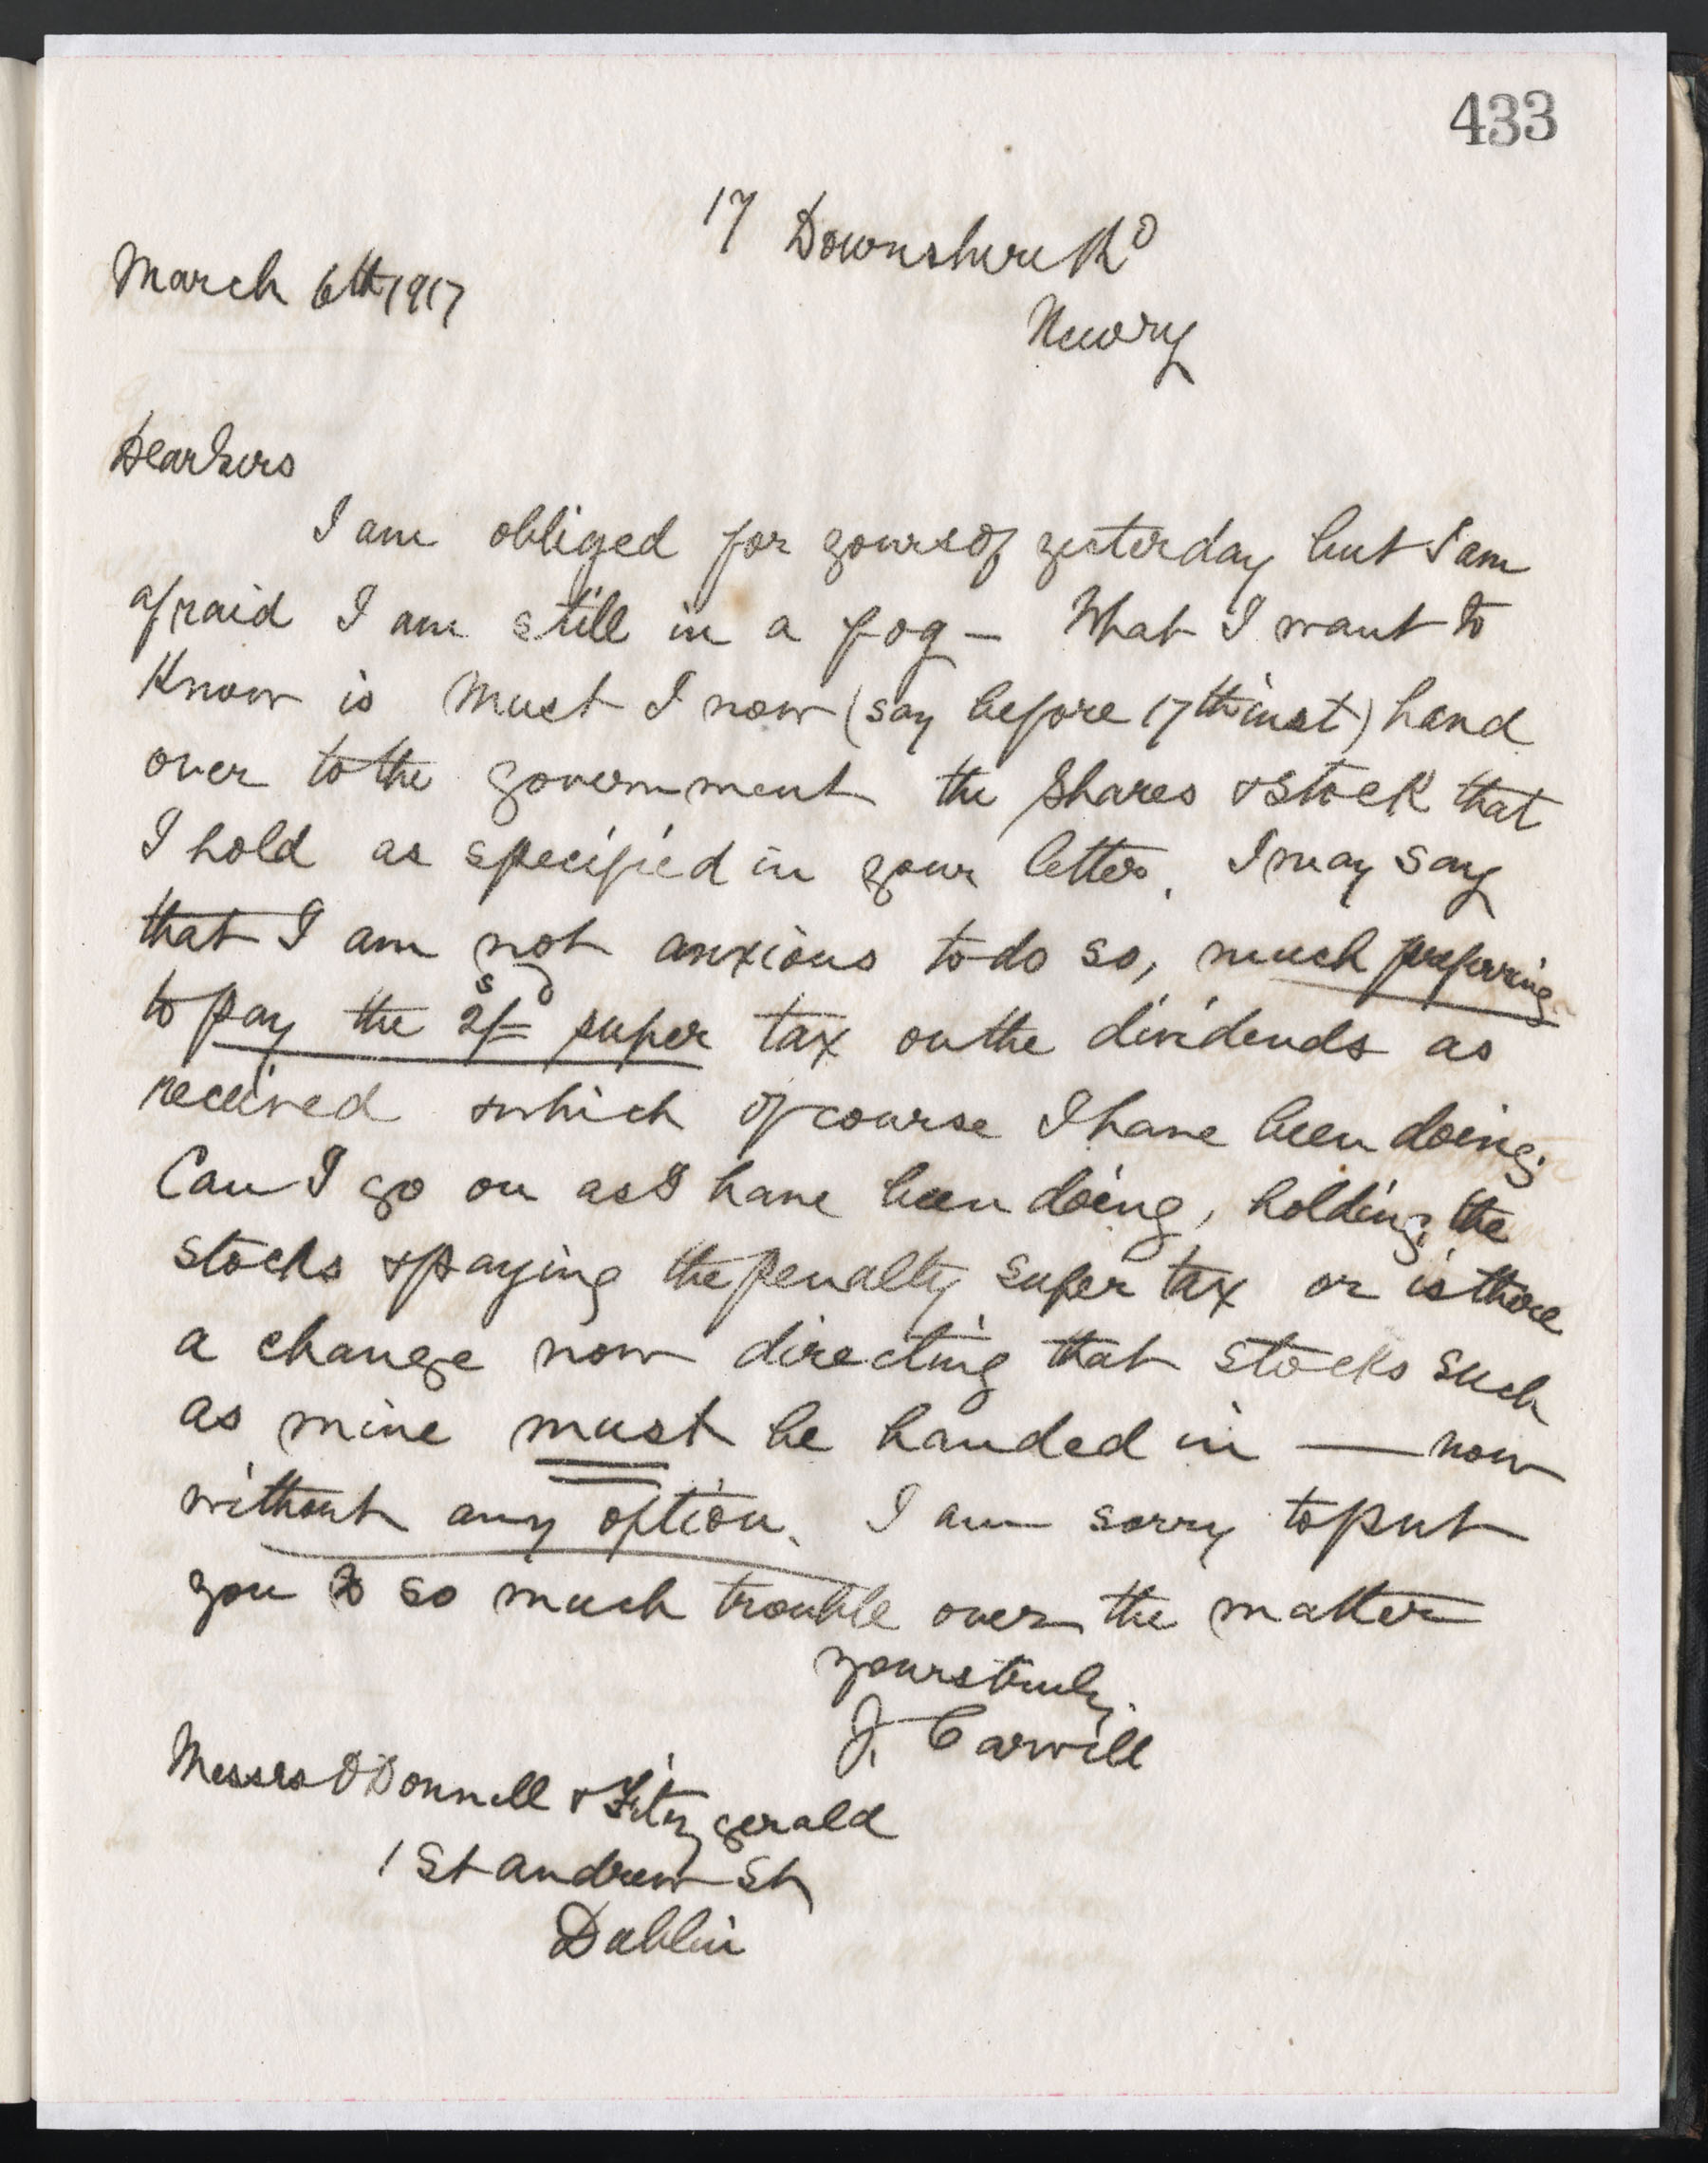 433
17 Downshire Rd
March 6th 1917
Newry
Dear Sirs
I am obliged for yours of yesterday but I am
afraid I am still in a fog — What I want to
Know is Must I now (say before 17th inst) hand
over to the government the Shares & Stock that
I hold as specified in your letter. I may say
that I am not anxious to do so, much preferring
to pay the 2s/=d super tax on the dividends as
received which of course I have been doing.
Can I go on as I have been doing, holding the
stocks & paying the penalty super tax or is there
a change now directing that stocks such
as mine must be handed in — now
without any option. I am sorry to put
you to so much trouble over the matter
yours truly
J. Carvill
Messrs O'Donnell & Fitzgerald
1 St Andrew St
Dublin